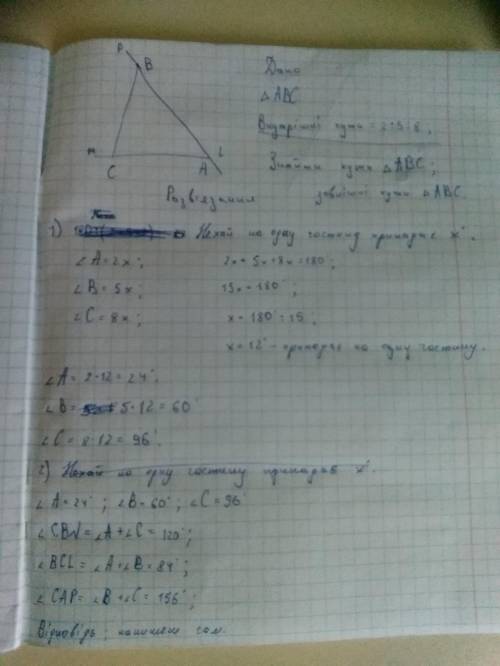 P
B
M
C
A
L
Дано
△ABC
Внутрішні кути = 2:5:8.
Знайти кути △ABC;
зовнішні кути △ABC.
Розв'язання
1) Нехай на одну частину припадає x°.
∠A=2x;
2x+5x+8x=180°
∠B=5x;
15x=180°;
∠C=8x;
x=180°:15;
x=12° - припадає на одну частину.
∠A=2·12=24°.
∠B= 5·12=60°
∠C=8·12=96°.
2) Нехай на одну частину припадає x°.
∠A=24°; ∠B=60°; ∠C=96°
∠CBN=∠A+∠C=120°;
∠BCL=∠A+∠B=84°;
∠CAP=∠B+∠C=156°;
Відповідь: напишеш сам.